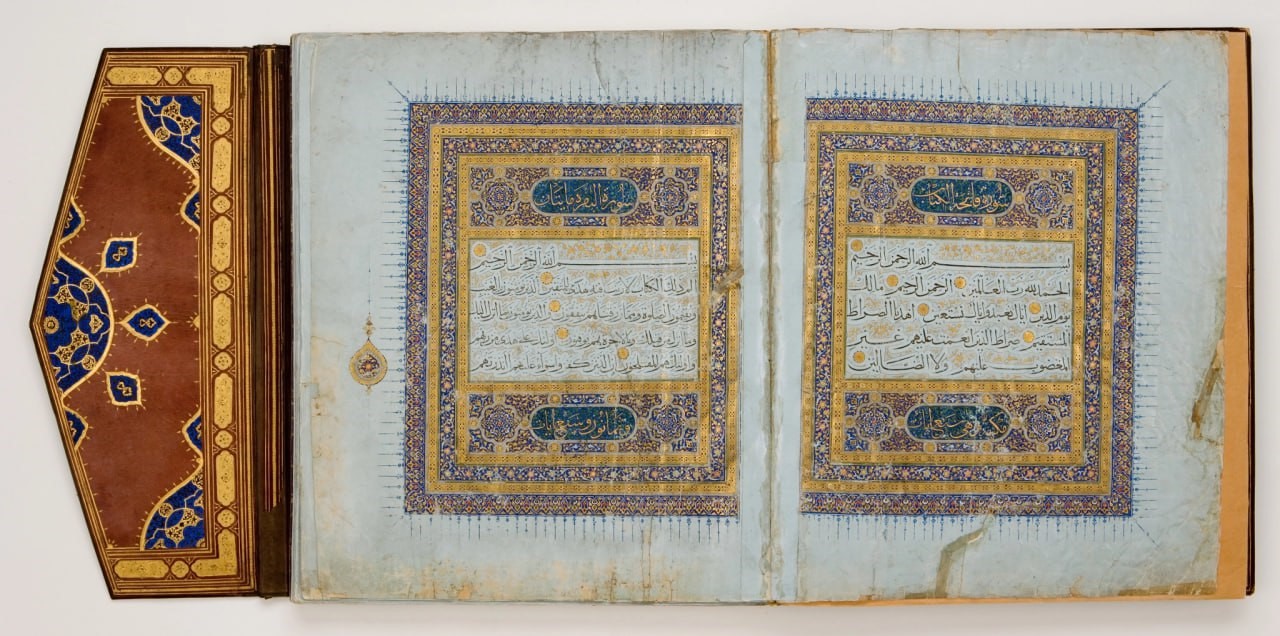 سورة فاتحة الكتاب
بسم الله الرحمن الرحيم
الحمد لله رب العالمين الرحمن الرحيم مالك
يوم الدين اياك نعبد واياك نستعين اهدنا الصراط
المستقيم صراط الذين انعمت عليهم غير
المغضوب عليهم ولا الضالين
مكية وهي سبع ايات
سورة البقرة مايتان
بسم الله الرحمن الرحيم
الم ذلك الكتاب لا ريب فيه هدى للمتقين الذين يؤمنون بالغيب
ويقيمون الصلوة ومما رزقناهم ينفقون والذين يؤمنون بما انزل اليك
وما انزل من قبلك وبالاخرة هم يوقنون اولئك على هدى من ربهم
واولئك هم المفلحون ان الذين كفروا سواء عليهم ءانذرتهم
وثمانون ايات